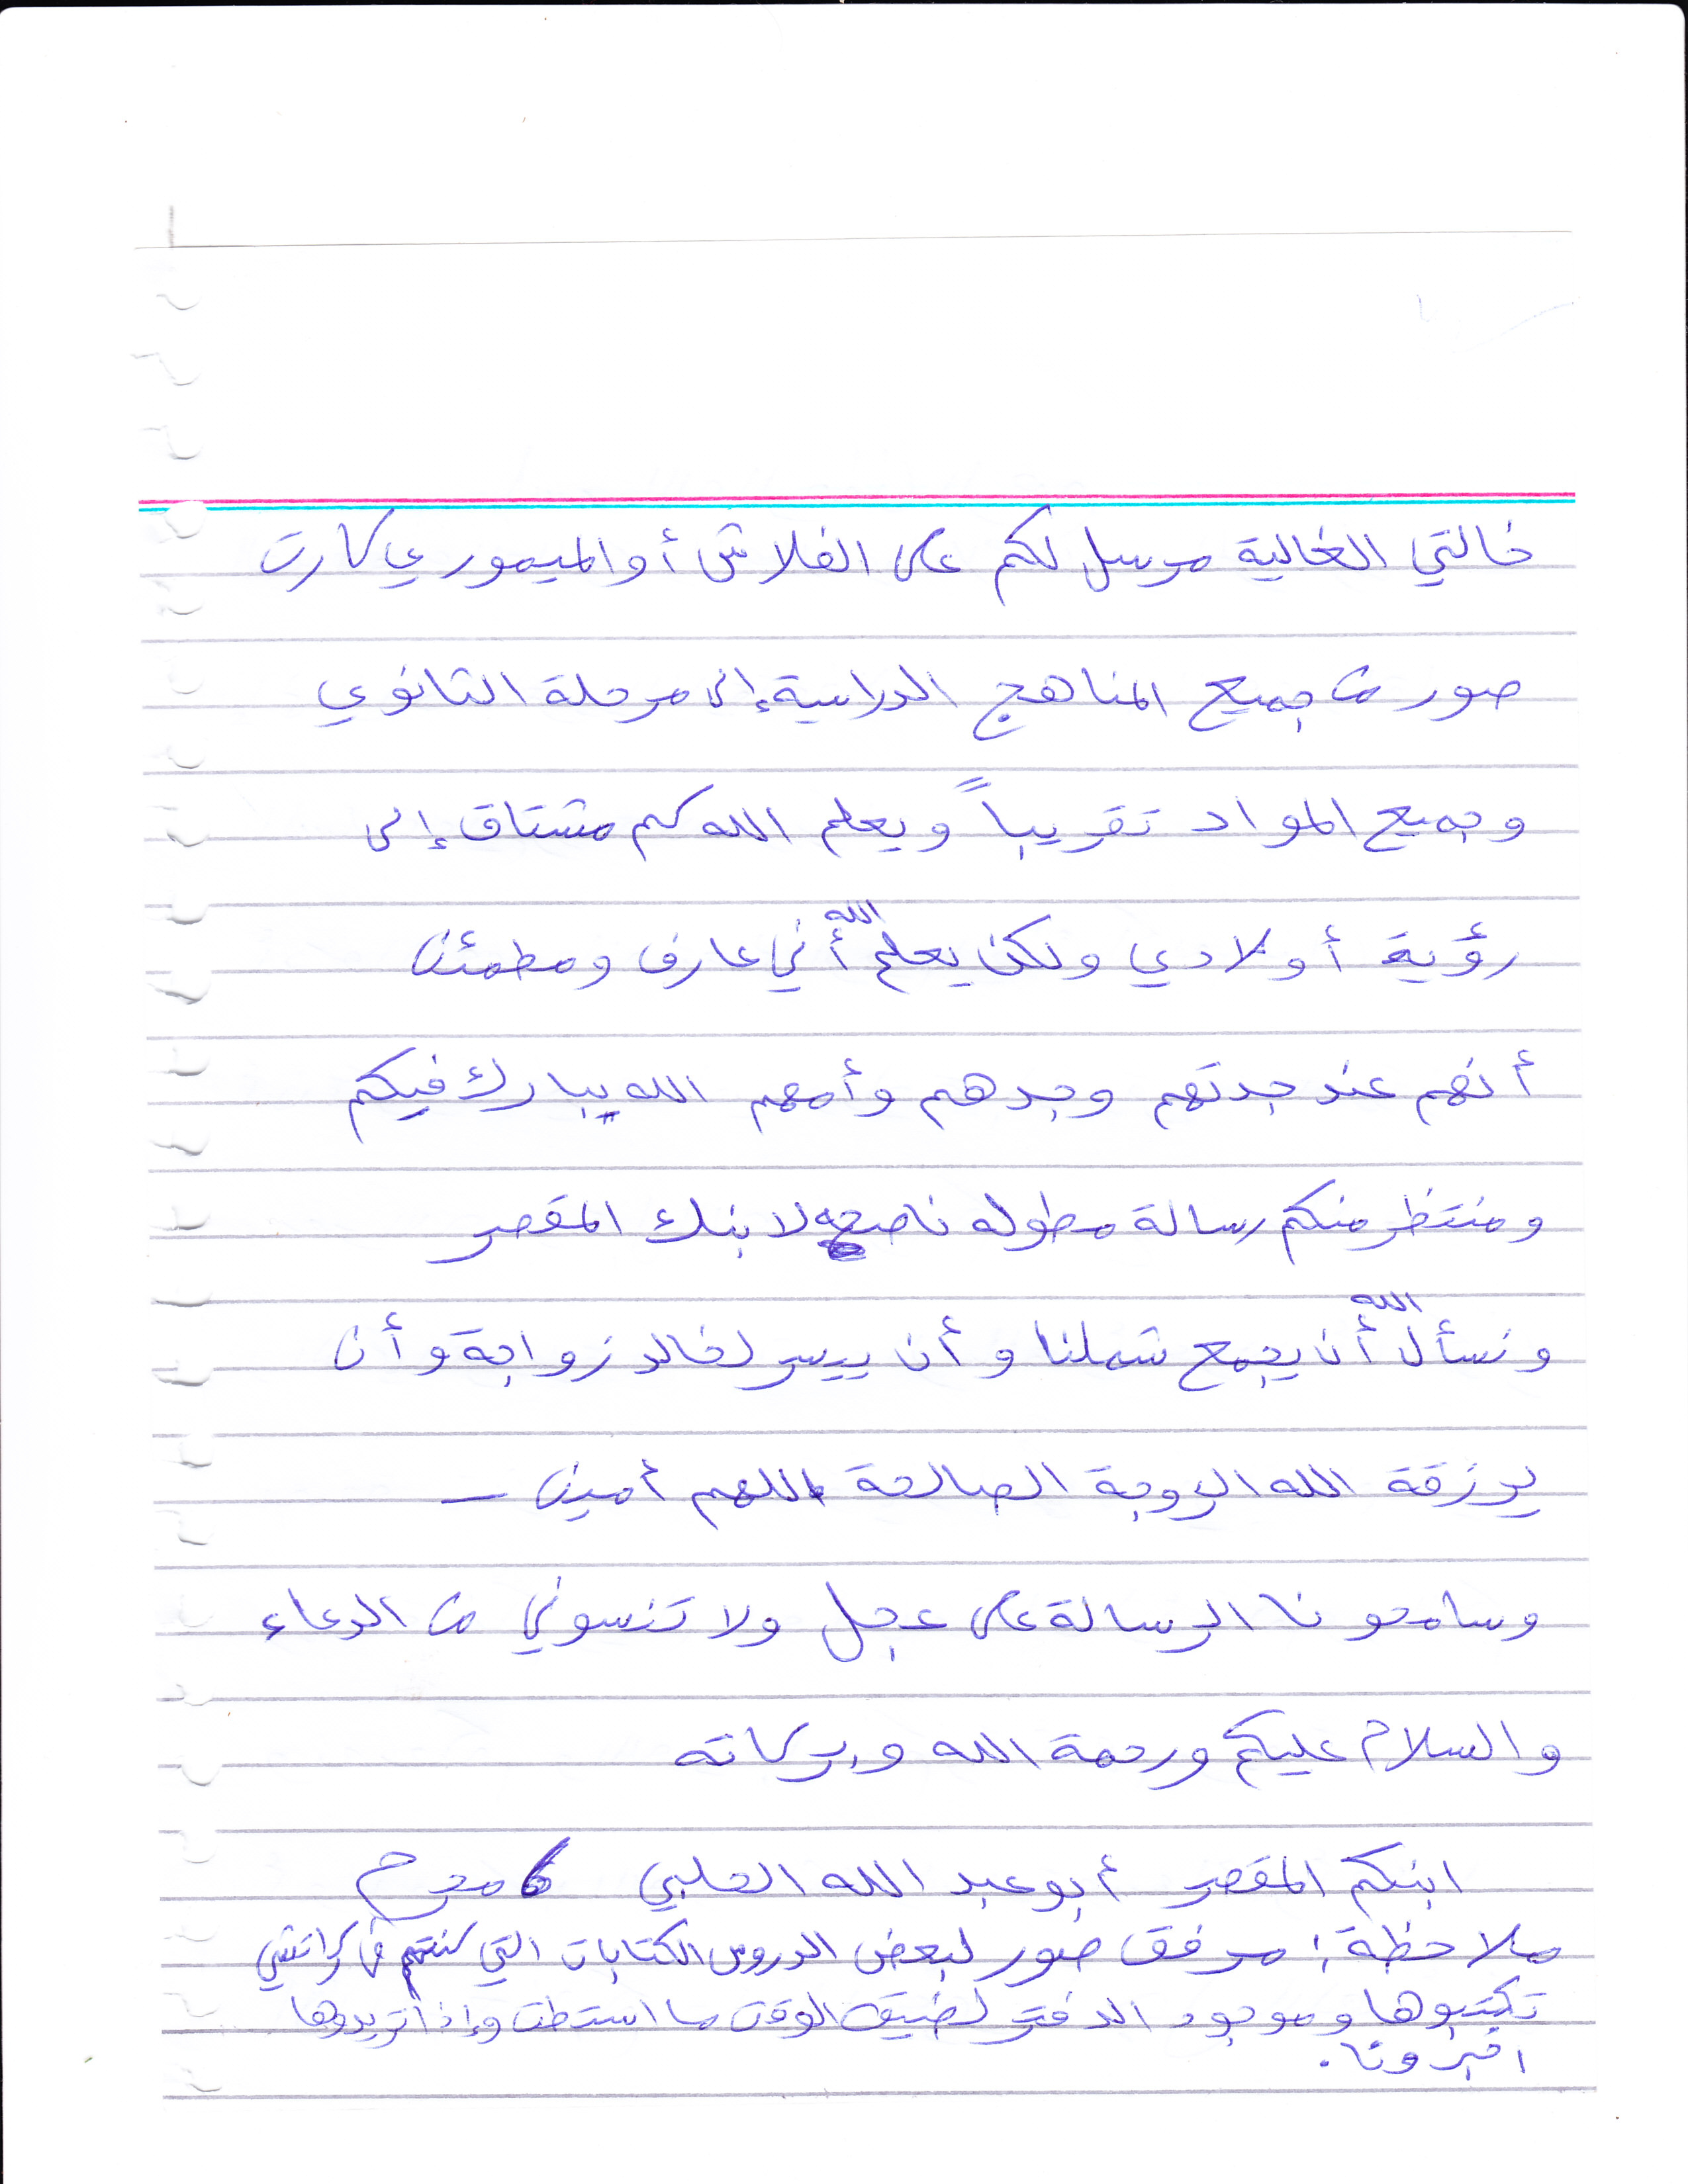 خالتي الغالية مرسل لكم على الفلاش أو الميموري كارت
صور من جميع المناهج الدراسية إلى مرحلة الثانوي
وجميع المواد تقريباً ويعلم الله كم مشتاق إلى
رؤية أولادي ولكن يعلم الله أني عارف ومطمئن
أنهم عند جدتهم وجدهم وأمهم الله يبارك فيكم
ومنتظر منكم رسالة مطوله ناصحه لابنك المقصر
ونسأل الله أن يجمع شملنا وأن ييسر لخالد زواجة وأن
يرزقة الله الزوجة الصالحة اللهم أمين –
وسامحونا الرسالة على عجل ولا تنسوني من الدعاء
والسلام عليكم ورحمة الله وبركاته
ابنكم المقصر أبو عبد الله الحلبي 6 محرم
ملاحظة: مرفق صور لبعض الدروس الكتابات التي كنتم في كراتشي
تكتبوها وموجود الدفتر لضيق الوقت ما استطت وإذا تريدوها
اخبرونا.